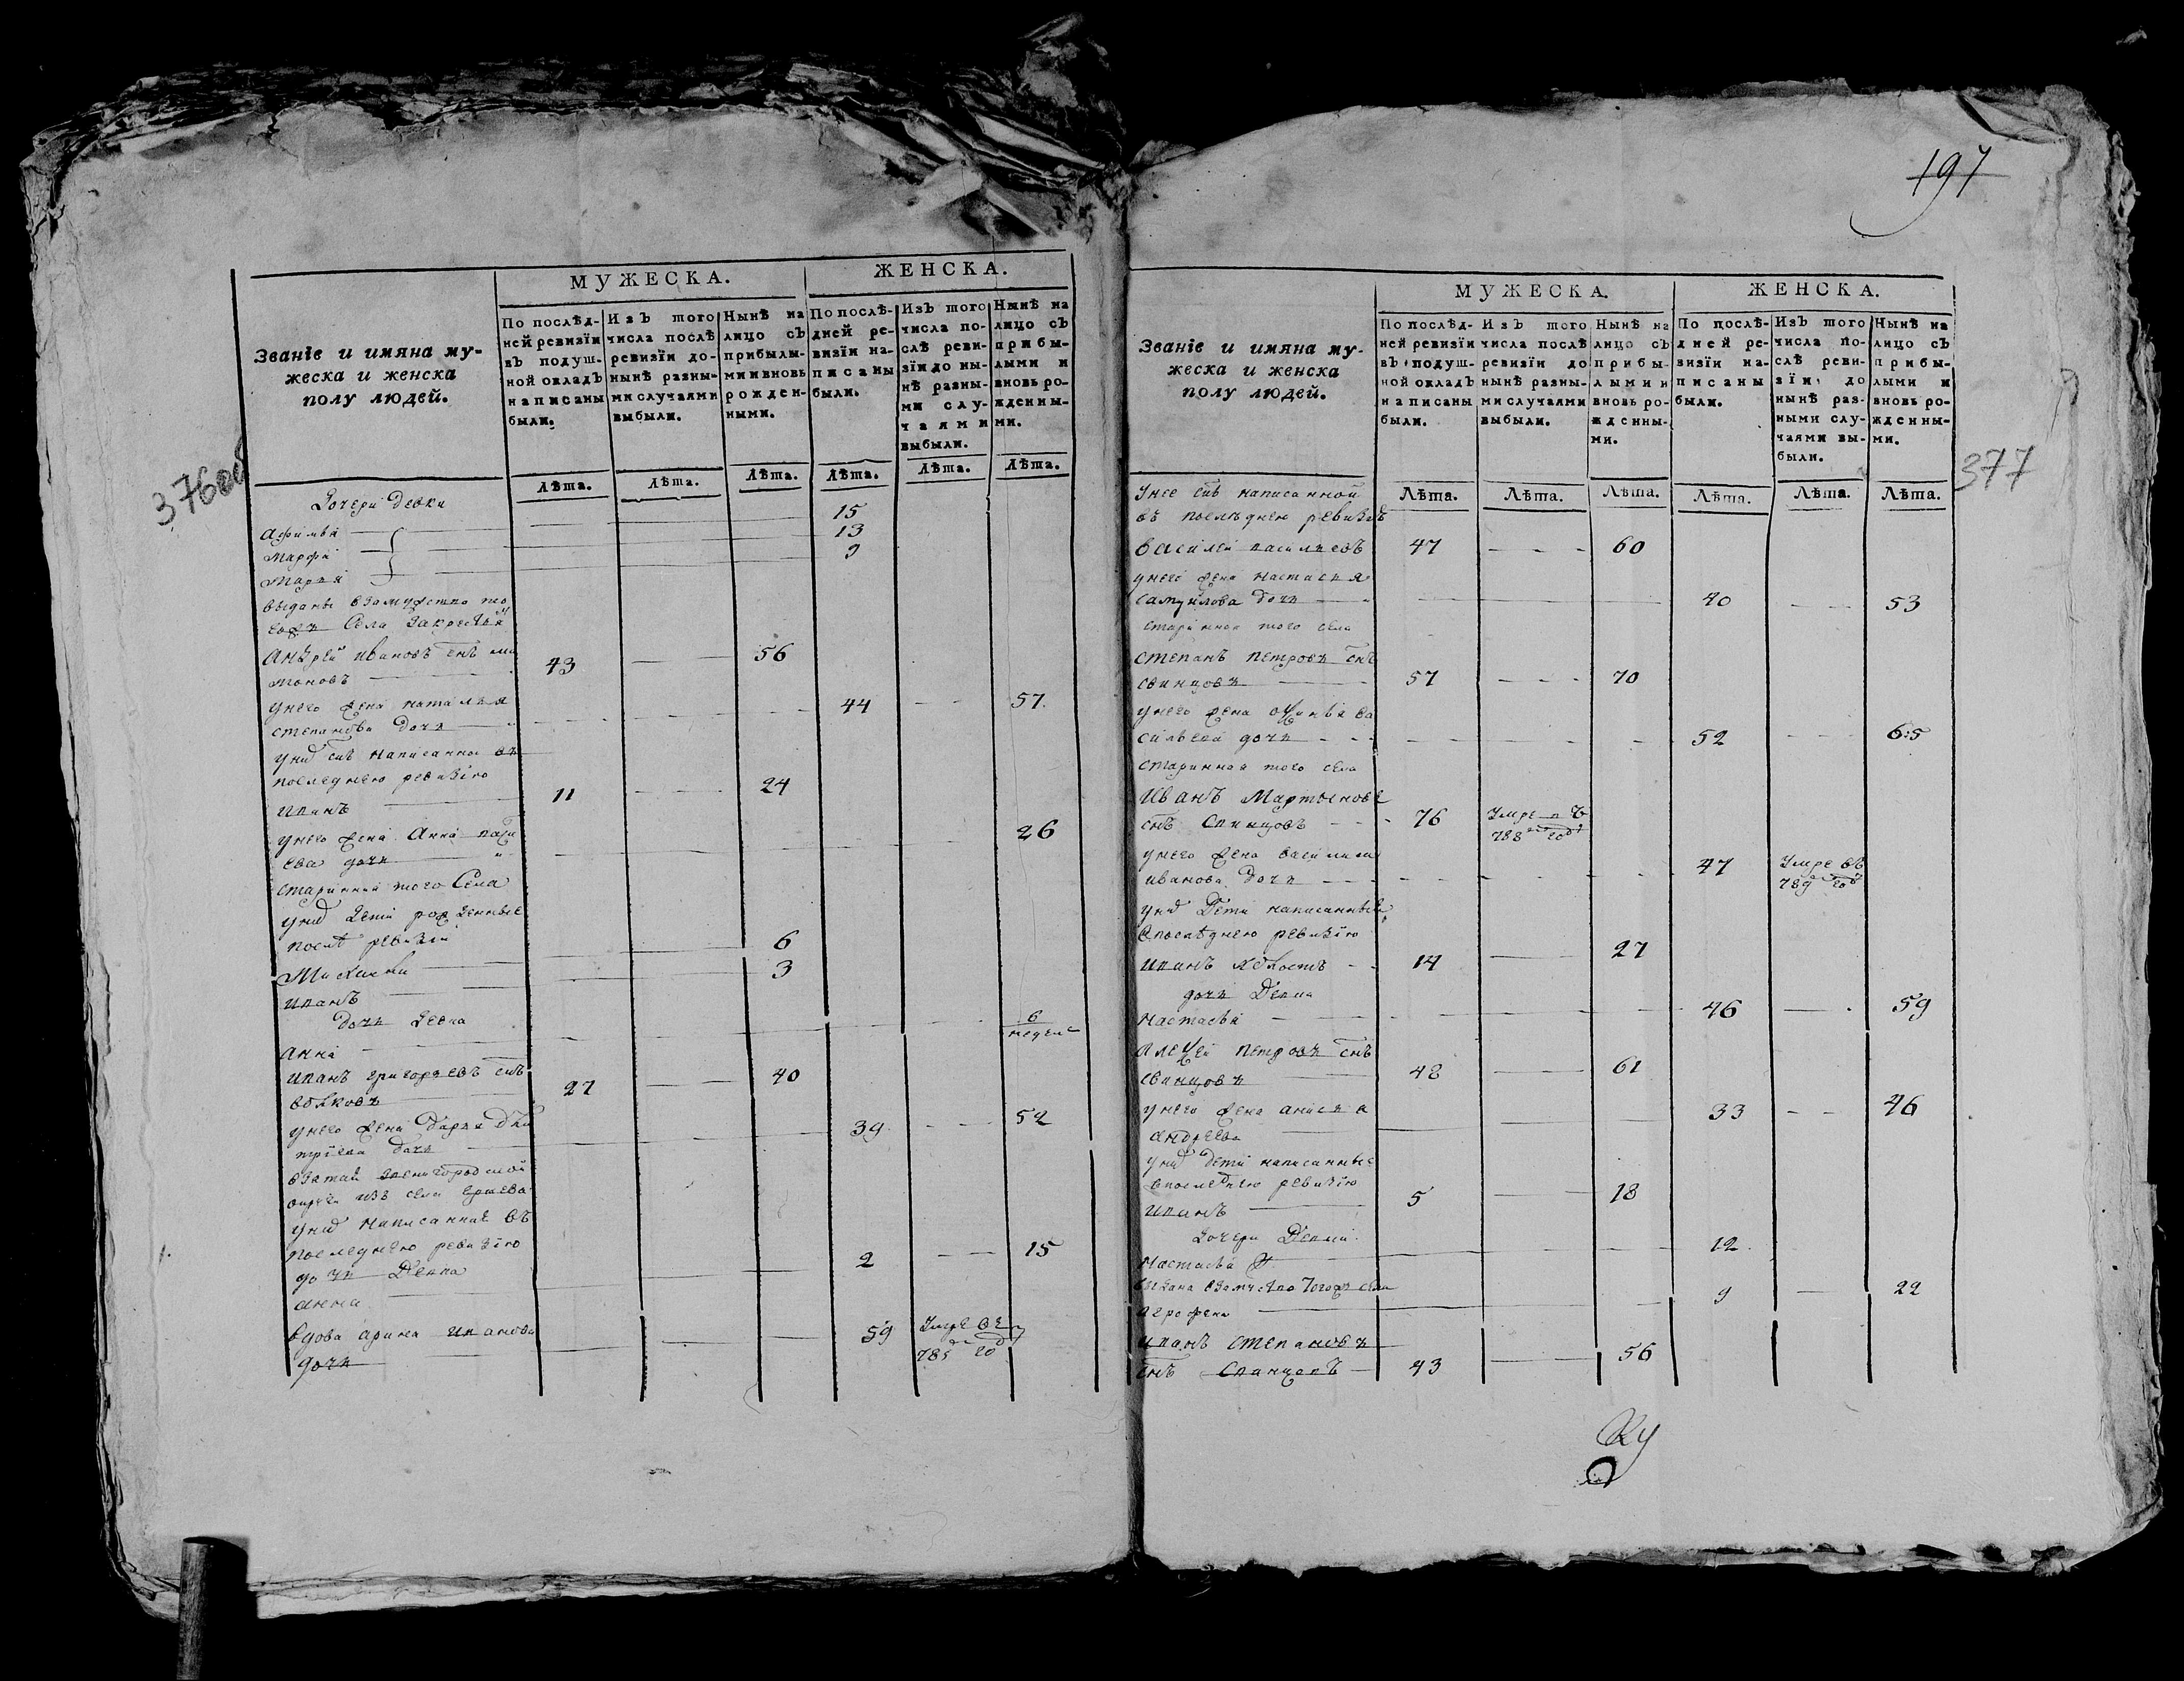 376об
МУЖЕСКА. ЖЕНСКА.
Званїе и имяна му-
жеска и женска
полу людей.
По послѣд-
ней ревизїи
въ подуш-
ной окладъ
написаны
были.
Изъ того
числа послѣ
ревизїи до-
нынѣ разны-
ми случаями
выбыли.
Нынѣ на
лицо съ
прибылы-
ми и вновь
рожден-
ными.
По послѣ-
дней ре-
визїи на-
писаны
были.
Изъ того
числа по-
слѣ реви-
зїи до ны-
нѣ разны-
ми слу-
чаями
выбыли.
Нынѣ на
лицо съ
прибы-
лыми и
вновь ро-
жденны-
ми.
Лѣта. Лѣта. Лѣта. Лѣта. Лѣта. Лѣта.
Дочери девки
афимья 15
марфа 13
марья 9
выданы взамужство то
гожъ Села
андрей ивановъ снъ 43 56
унего жена наталья
степанова дочь 44 57
униd снъ написанной въ
последнею ревизїю
иванъ 11 24
унего жена Анна
ева дочь 26
старинная того Села
униd дети рожденные
после ревизїи
Михаила 6
иванъ 3
дочь девка
анна 6 недель
иванъ григорьевъ снъ
волковъ 27 40
унего жена дарья дми
трїева дочь 39 52
взятая звенигородской
округи изъ села ершева
униd написанная въ
последнею ревизїю
дочь девка
анна 2 15
вдова арина иванова
дочь 59 Умре въ 785 годУ
197
377
МУЖЕСКА. ЖЕНСКА.
Званїе и имяна му-
жеска и женска
полу людей.
По послѣд-
ней ревизїи
въ подуш-
ной окладъ
написаны
были.
Изъ того
числа послѣ
ревизїи до
нынѣ разны-
ми случаями
выбыли.
Нынѣ на
лицо съ
прибы-
лыми и
вновь ро-
жденны-
ми.
По послѣ-
дней ре-
визїи на-
писаны
были.
Изъ того
числа по-
слѣ реви-
зїи до
нынѣ раз-
ными слу-
чаями вы-
были.
Нынѣ на
лицо съ
прибы-
лыми и
вновь ро-
жденны-
ми.
Лѣта. Лѣта. Лѣта. Лѣта. Лѣта. Лѣта.
унее снъ написанной
въ последнею ревизїю
василей васильевъ 47 60
унего жена настасья
самуилова дочь 40 53
старинная того села
степанъ петровъ снъ
свинцовъ 57 70
унего жена ва
сильева дочь 52 65
старинная того села
иванъ Мартыновъ
снъ Свинцовъ 76 Умре въ 788 году
унего жена василиса
иванова дочь 47 Умре въ 789 году
униd дети написанные
впоследнею ревизїю
иванъ холостъ 14 27
дочь девка
настасья 46 59
алексей петровъ снъ
свинцовъ 48 61
унего жена анисья
андреева 33 46
униd дети написанные
впоследнею ревизїю
иванъ 5 18
дочери девки
настасья 12
выдана взамуство тогожъ села
аграфена 9 22
иванъ степановъ
снъ Свинцовъ 43 56